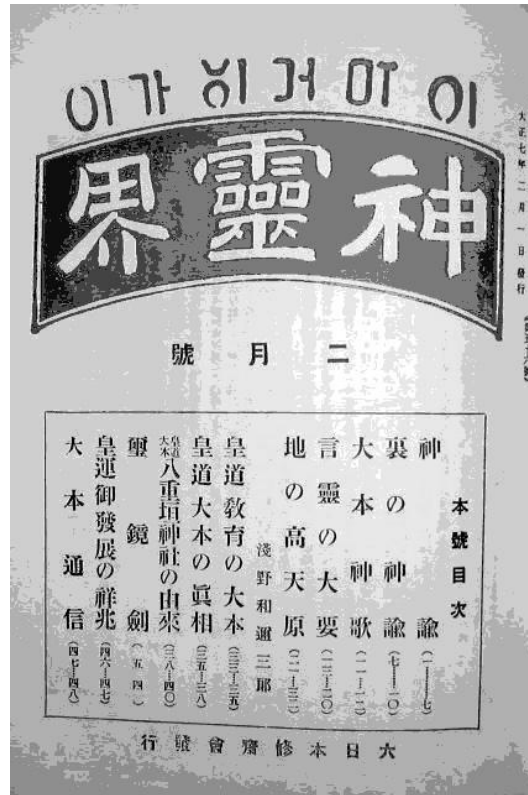 神靈界
大正七年二月一日發行
二月號
本號目次
神諭(一——七)
裏の神諭(七—一〇)
大本神歌(一一—一二)
言靈の大要(一三—二〇)
地の高天原(二一—三二)
淺野和邇三郎
皇道敎育の大本(三三—三五)
皇道大本の眞相(三五—三八)
皇道大本八重垣神社の由來(三八—四〇)
璽鏡劍(五四)
皇運御發展の祥兆(四六—四七)
大本通信(四七—四八)
大日本修齋會發行